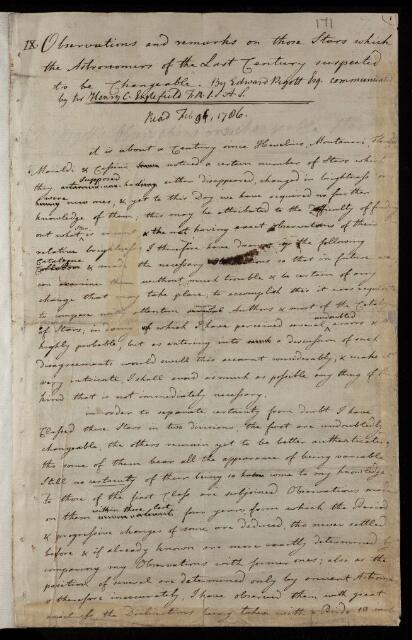 171
IX. Observations and remarks on those Stars which
the Astronomers of the Last Century suspected
to be Changeable. By Edward Pigott Esq. communicated
by Sr Henry C. Englefield F.R.S. A.S.
Read Feb 9th, 1786.
it is about a Century since Hevelius, Montanari,
Marald. & Cassini noted a certain number of Stars which
supposed
they either disappeared, changed in brightness or
were
new ones, & yet to this Day we have acquired no further
knowledge of them; this may be attributed to the difficulty of
out what is & the not having exact observations of their
relative brightness. I therefore have the following
Catalogue
& made the necessary so that in future
can examine them without much trouble & be certain of any
change that may take place, to accomplish this it was
to compare with attention Authors & most of the
undoubted
of Stars, in doing of which I have perceived several errors &
highly probable, but as entering into a discussion of such
disagreements would swell this account considerably, & make it
very intricate I shall avoid as much as possible any thing of
kind that is not immediately necessary.
in order to separate certainty from doubt I have
Classed these Stars in two divisions the first are undoubtedly
changeable, the others remain yet to be better authenticated
tho some of them bear all the appearance of being variable
Still no certainty of their being so has come to my knowledge
to those of the first Class are subjoined Observations made
within these last
on them four years, from which the Period
& progressive changes of some are deduced, tho never settled
before & if already known are more exactly determined by
comparing my Observations with former ones; also as the
position of several are determined only by ancient
& therefore inaccurately, I have observed them with great
exactness the Declinations being taken with a